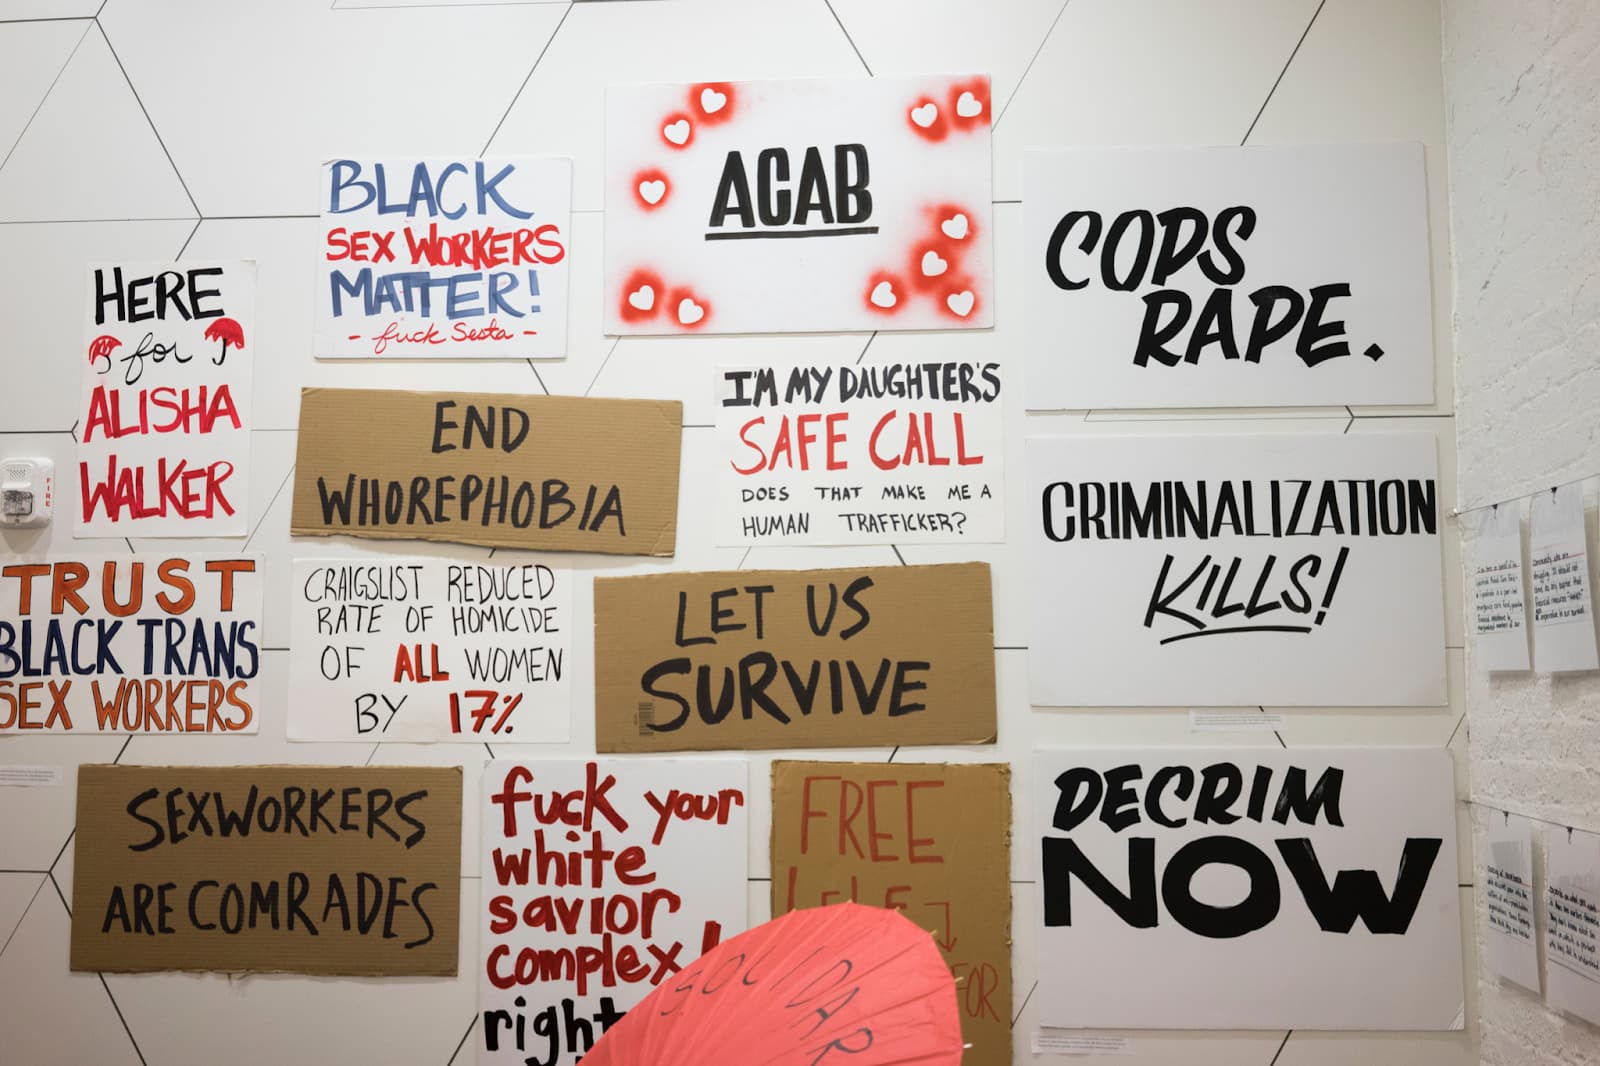 BLACK
SEX WORKERS
MATTER!
- fuck Sesta -
ACAB
COPS
RAPE.
HERE
for
ALISHA
WALKER
END
WHOREPHOBIA
I'M MY DAUGHTER'S
SAFE CALL
DOES THAT MAKE ME A
HUMAN TRAFFICKER?
CRIMINALIZATION
KILLS!
FIRE
TRUST
BLACK TRANS
SEX WORKERS
CRAIGSLIST REDUCED
RATE OF HOMICIDE
OF ALL WOMEN
BY 17%
LET US
SURVIVE
SEXWORKERS
ARE COMRADES
fuck your
white
savior
complex!
right
FREE
LELE
FOR
SOLIDAR
DECRIM
NOW